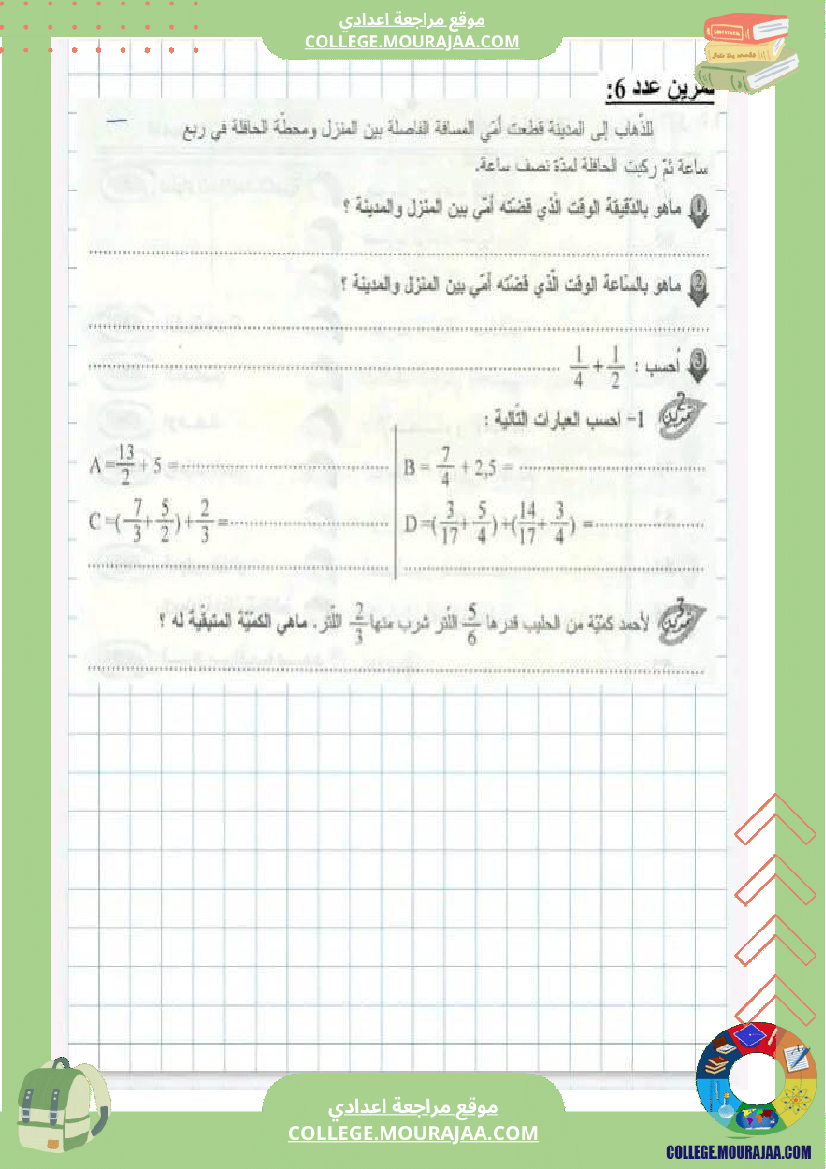 موقع مراجعة اعدادي
COLLEGE.MOURAJAA.COM
تمرين عدد 6:
للذّهاب إلى المدينة قطعت أمّي المسافة الفاصلة بين المنزل ومحطّة الحافلة في ربع
ساعة ثمّ ركبت الحافلة لمدّة نصف ساعة.
1 ماهو بالدّقيقة الوقت الّذي قضته أمّي بين المنزل والمدينة ؟
2 ماهو بالسّاعة الوقت الّذي قضته أمّي بين المنزل والمدينة ؟
3 أحسب : 1/2 + 1/4
تمرين 2 1- احسب العبارات التّالية :
A = 13/2 + 5 =
B = 7/4 + 2,5 =
C =( 7/3 + 5/2 ) + 2/3 =
D =( 3/17 + 5/4 ) +( 14/17 + 3/4 ) =
تمرين 3 لأحمد كمّيّة من الحليب قدرها 5/6 اللّتر شرب منها 2/3 اللّتر. ماهي الكمّيّة المتبقّية له ؟
موقع مراجعة اعدادي
COLLEGE.MOURAJAA.COM
COLLEGE.MOURAJAA.COM